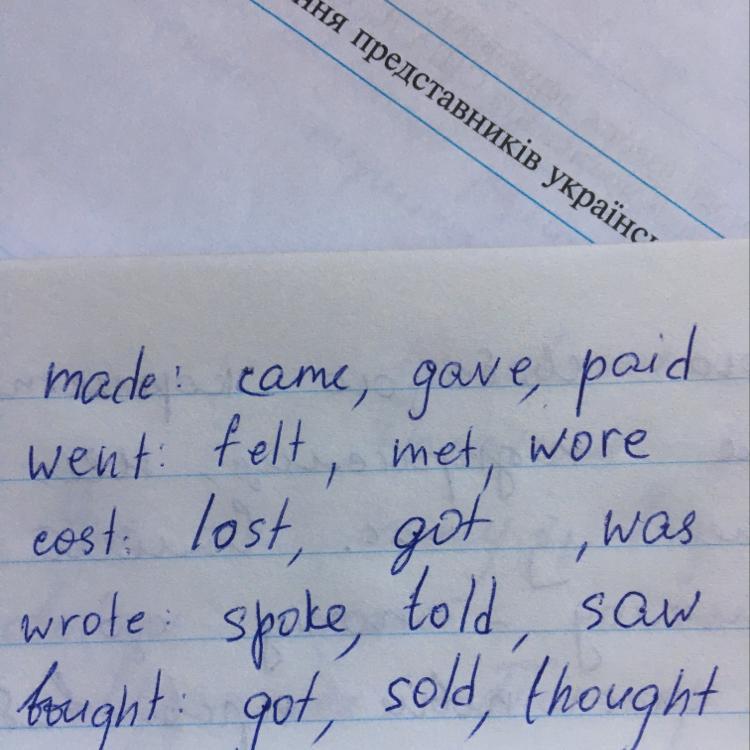 ння представників українсь
made: came, gave, paid
went: felt, met, wore
cost: lost, got, was
wrote: spoke, told, saw
bought: got, sold, thought